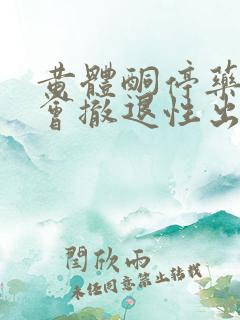 黄體酮停藥
會撤退性出
閆欣雨
未經同意禁止轉載